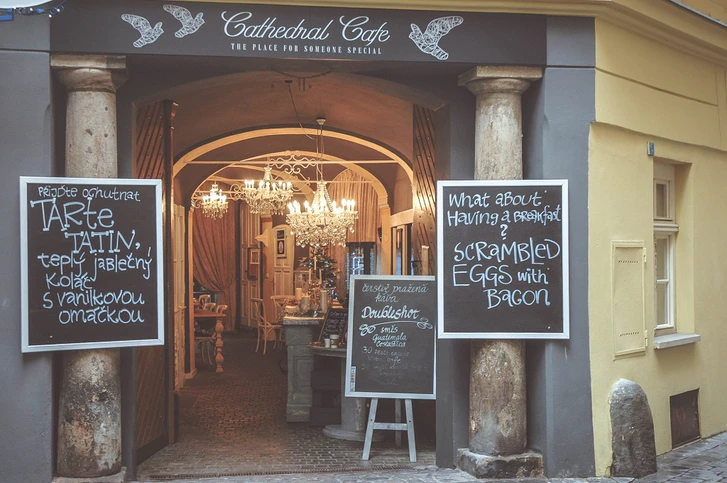 Cathedral Cafe
THE PLACE FOR SOMEONE SPECIAL
PŘIJĎTE OCHUTNAT
TARTE
TATIN,
teplý jablečný
koláč
s vanilkovou
omáčkou
WHAT ABOUT
HAVING A BREAKFAST
?
SCRAMBLED
EGGS with
BACON
čerstvě pražená
káva
Doubleshot
směs
Guatemala